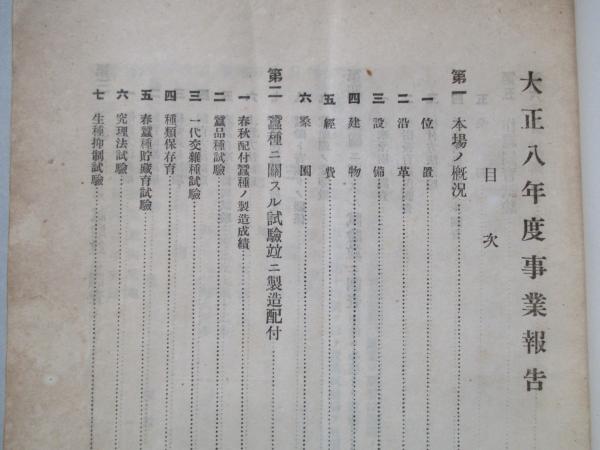 大正八年度事業報告
目次
第一 本場ノ概況
一 位置
二 沿革
三 設備
四 建物
五 經費
六 桑園
第二 蠶種ニ關スル試驗竝ニ製造配付
一 春秋配付蠶種ノ製造成績
二 蠶品種試驗
三 一代交雜種試驗
四 種類保存育
五 春蠶種貯藏育試驗
六 究理法試驗
七 生種抑制試驗